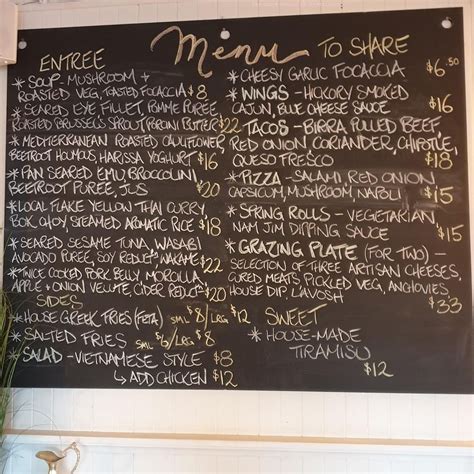 Menu
ENTREE
* SOUP - MUSHROOM +
ROASTED VEG, TOASTED FOCACCIA $8
* SEARED EYE FILLET, POMME PUREE,
ROASTED BRUSSEL'S SPROUT, PORCINI BUTTER $22
* MEDITERRANEAN ROASTED CAULIFLOWER,
BEETROOT HOUMOUS, HARISSA YOGHURT $16
* PAN SEARED EMU, BROCCOLINI,
BEETROOT PUREE, JUS $20
* LOCAL FLAKE YELLOW THAI CURRY
BOK CHOY, STEAMED AROMATIC RICE $18
* SEARED SESAME TUNA, WASABI
AVOCADO PUREE, SOY REDUCT° WAKAME $22
* TWICE COOKED PORK BELLY, MORCILLA
APPLE + ONION VELUTE, CIDER REDUCT° $20
SIDES
* HOUSE GREEK FRIES (FETA) SML $8/LRG $12
* SALTED FRIES SML $6/LRG $8
* SALAD - VIETNAMESE STYLE $8
↳ ADD CHICKEN $12
TO SHARE
* CHEESY GARLIC FOCACCIA $6.50
* WINGS - HICKORY SMOKED
CAJUN, BLUE CHEESE SAUCE $16
* TACOS - BIRRA PULLED BEEF,
RED ONION CORIANDER, CHIPOTLE,
QUESO FRESCO $18
* PIZZA - SALAMI, RED ONION
CAPSICUM, MUSHROOM, NAPOLI $15
* SPRING ROLLS - VEGETARIAN,
NAM JIM DIPPING SAUCE $15
* GRAZING PLATE (FOR TWO) -
SELECTION OF THREE ARTISAN CHEESES,
CURED MEATS, PICKLED VEG, ANCHOVIES
HOUSE DIP, LAVOSH $33
SWEET
* HOUSE-MADE
TIRAMISU
$12